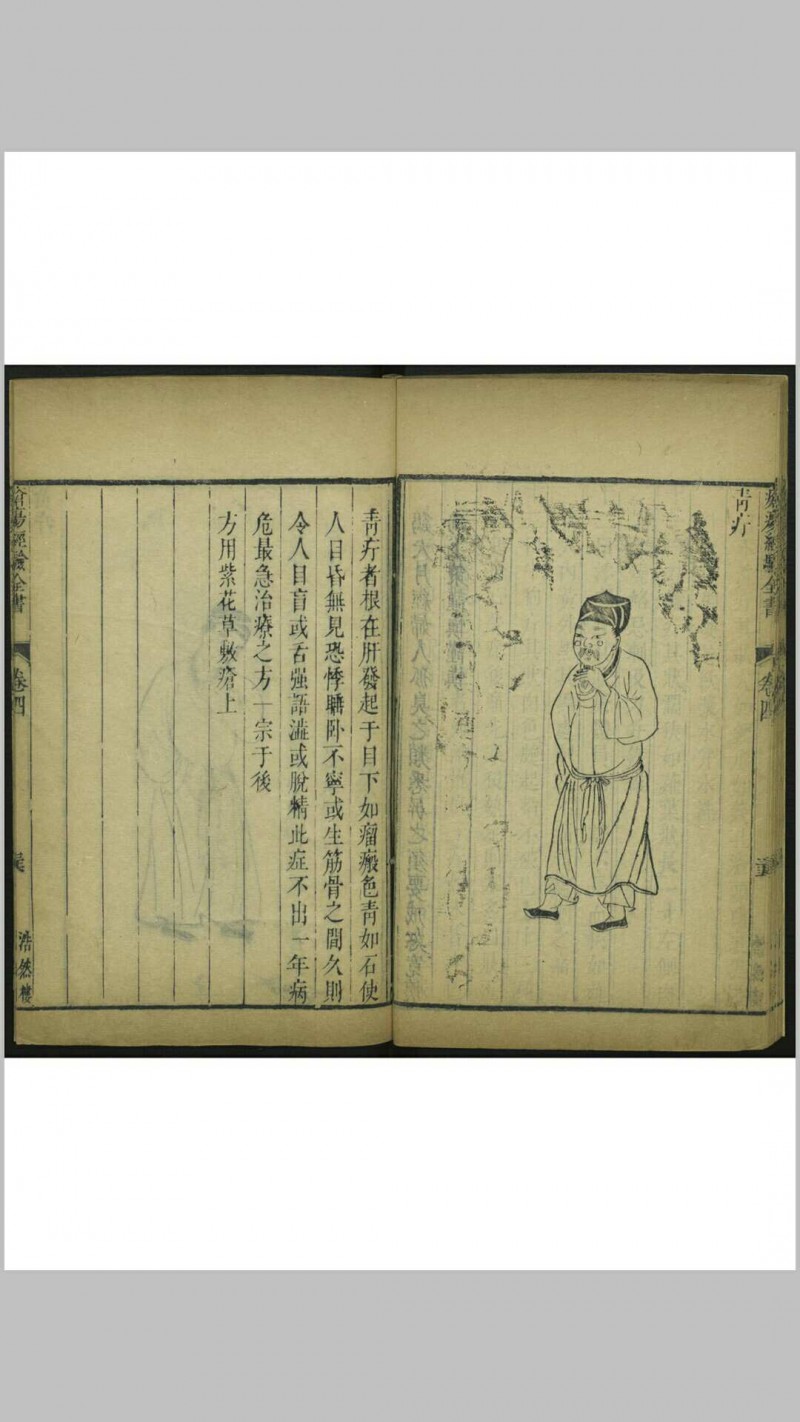 瘡瘍經驗全書
卷四
青疔
青疔者根在肝發起于目下如瘤瘢色青如石使
人目昏無見恐悸睡卧不寧或生筋骨之間久則
令人目盲或舌强語澁或脫精此症不出一年病
危最急治療之方一宗于後
方用紫花草敷瘡上
瘡瘍經驗全書
卷四
浩然樓